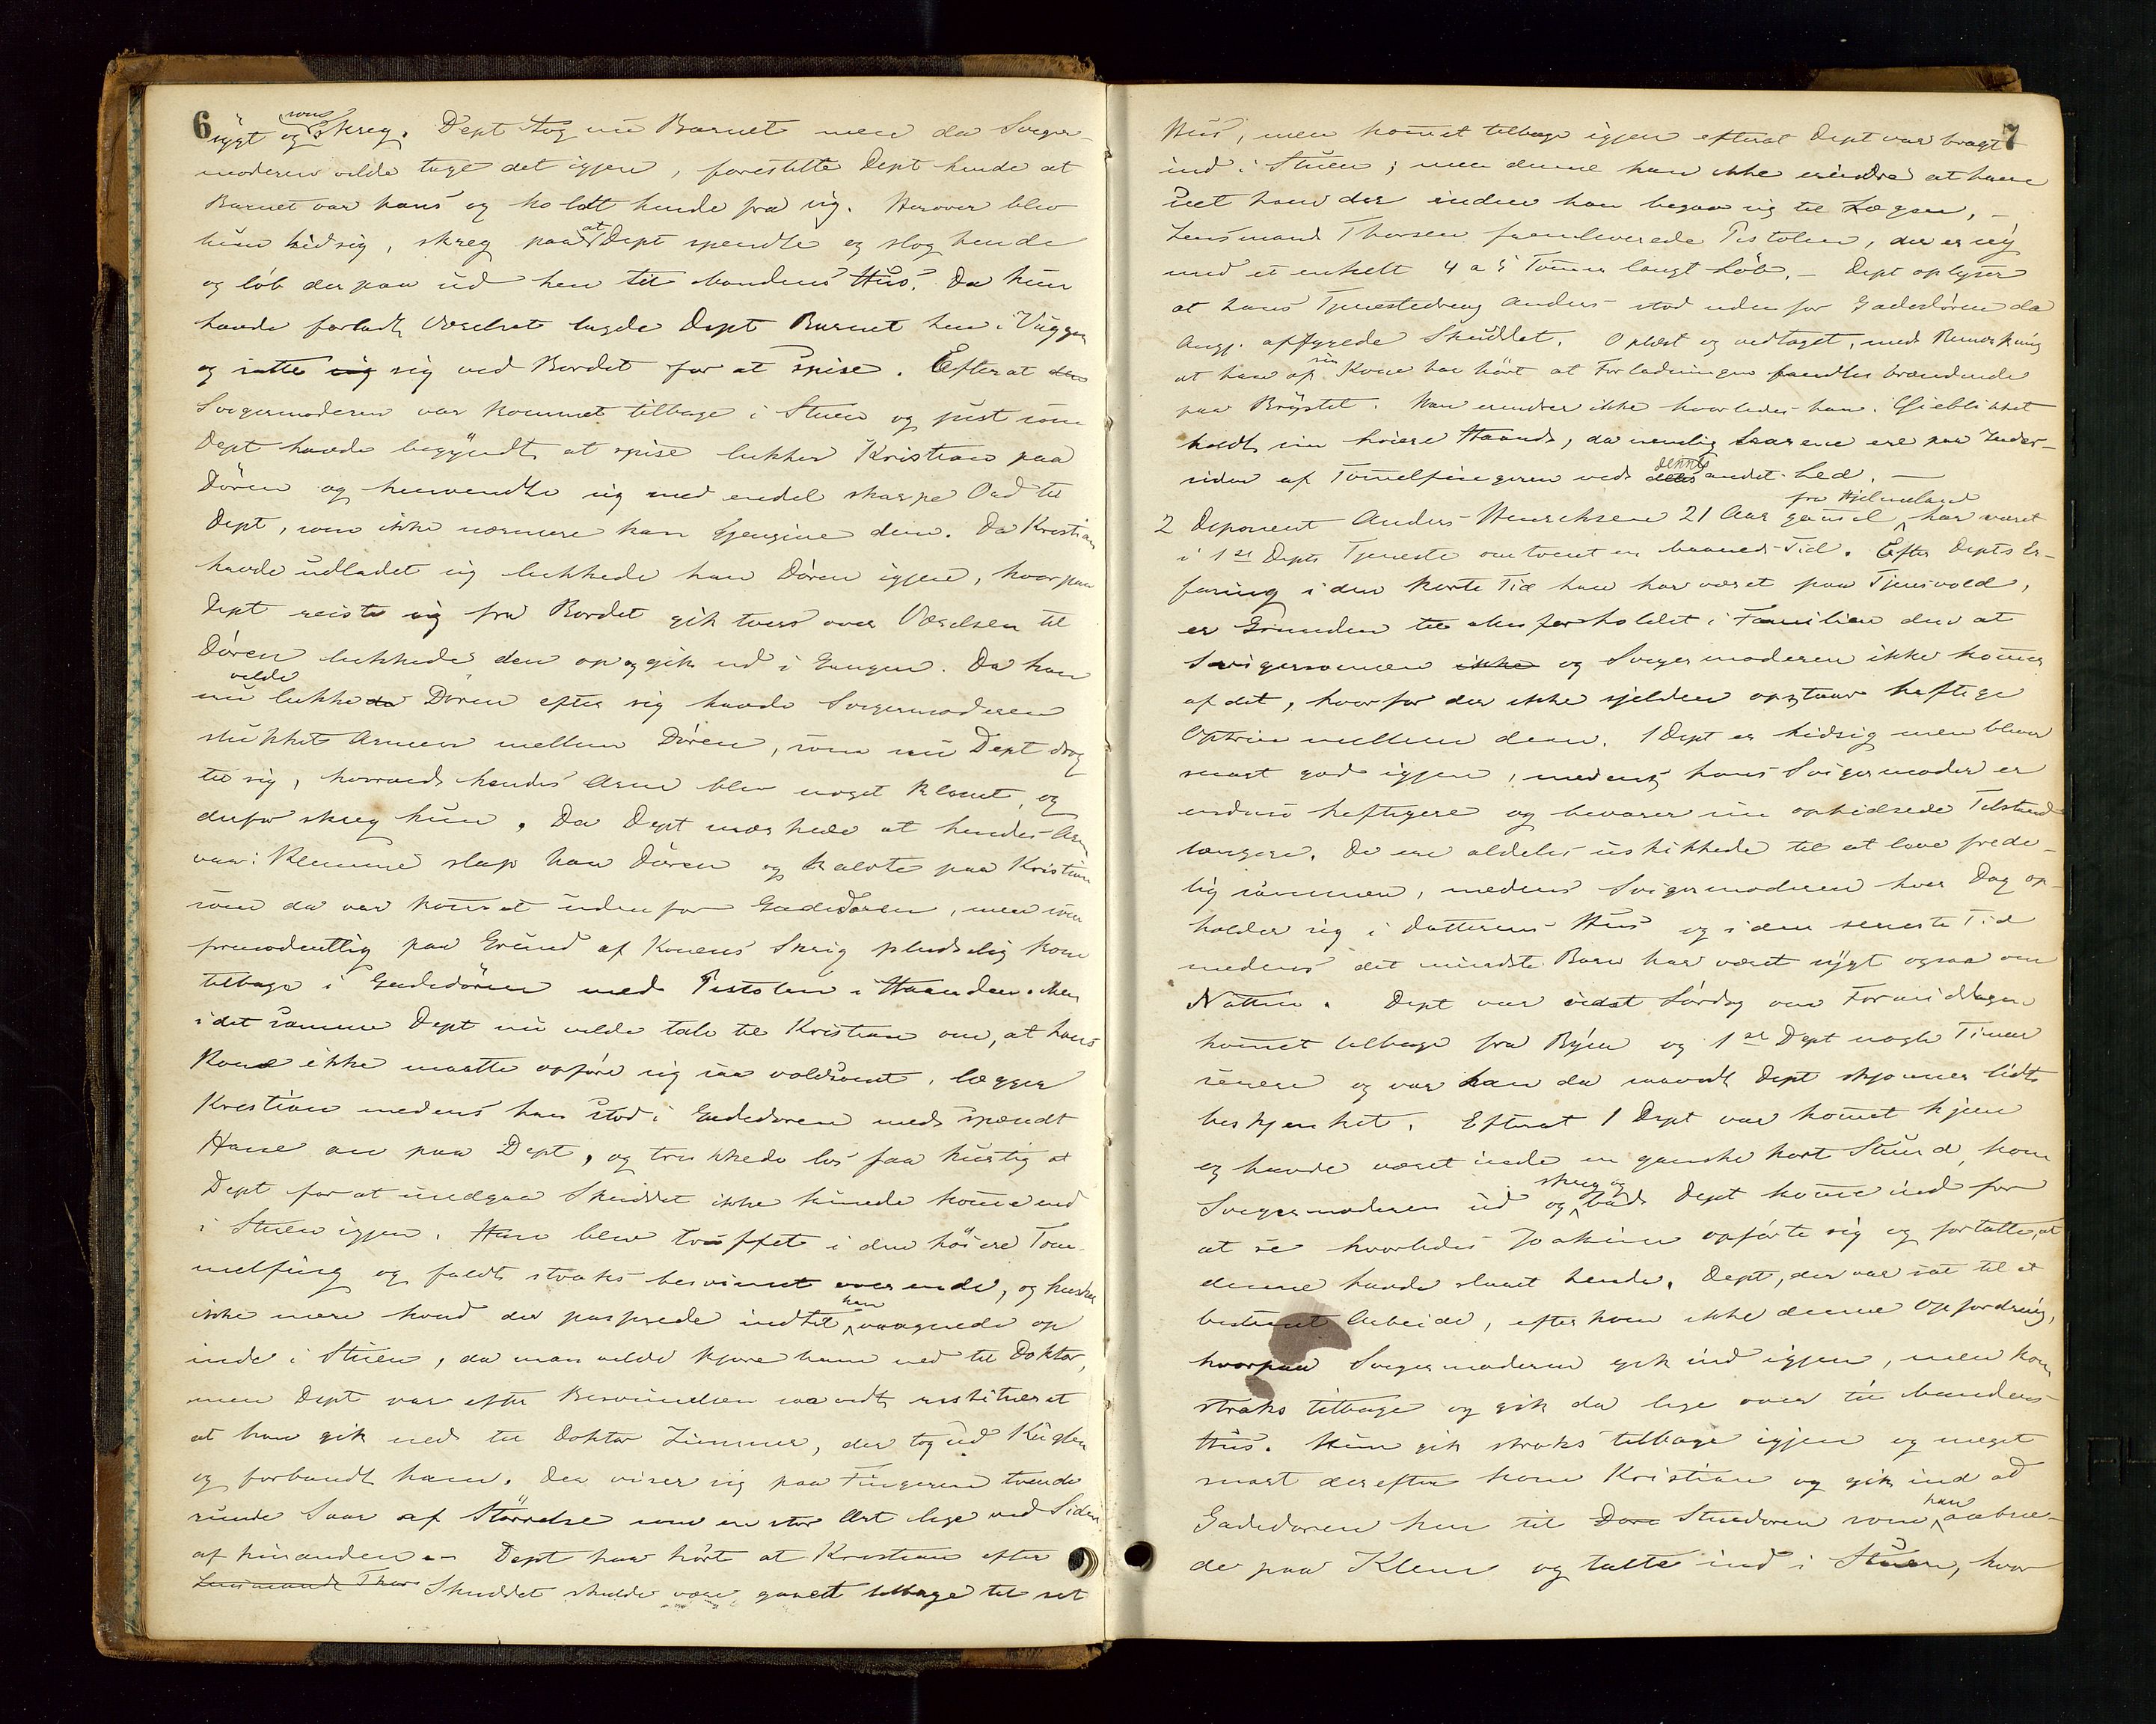 6
sygt og som skreg. Dept tog nu Barnet men da Sviger-
moderen vilde tage det igjen, forestilte Dept hende at
Barnet var hans og holdt hende fra sig. Herover blev
hun hidsig, skreg paa at Dept spendte og slog hende
og løb derpaa ud hen til Mandens Hus. Da hun
havde forladt Værelset lagde Dept Barnet hen i Vuggen
og satte sig sig ved Bordet for at spise. Efterat den
Svigermoderen var kommet tilbage i Stuen og just som
Dept havde begyndt at spise lukker Kristian paa
Døren og henvendte sig med endel skarpe Ord til
Dept, som ikke nærmere kan gjengive dem. Da Kristian
havde udladet sig lukkede han Døren igjen, hvorpaa
Dept reiste sig fra Bordet gik tvers over Værelset til
Døren lukkede den op og gik ud i Gangen. Da han
nu vilde lukkede Døren efter sig havde Svigermoderen
stukket Armen mellem Døren, som nu Dept drog
til sig, hvorved hendes Arm blev noget klemt, og
derfor skreg hun. Da Dept mærkede at hendes Arm
var i Klemme slap han Døren og kaldte paa Kristian
som da var kommet udenfor Gadedøren, men som
formodentlig paa Grund af Konens Skrig pludselig kom
tilbage i Gadedøren med Pistolen i Haanden. Men
i det samme Dept nu vilde tale til Kristian om, at hans
Kone ikke maatte opføre sig saa voldsomt, lægger
Kristian medens han stod i Gadedøren med spændt
Hane an paa Dept, og trykkede løs saa hurtig at
Dept for at undgaa Skuddet ikke kunde komme ind
i Stuen igjen. Han blev truffet i den høiere Tom-
melfing og faldt straks besvimet overende, og husker
ikke mere hvad der passerede indtil han vaagnede op
inde i Stuen, da man vilde kjøre ham ned til Doktor,
men Dept var efter Besvimelsen saavidt restitueret
at han gik ned til Doktor Zimmer, der tog ud Kuglen
og forbandt ham. Der viser sig paa Fingeren tvende
runde Saar af Størrelse som en stor Ært lige ved Siden
af hinanden. - Dept har hørt at Kristian efter
Lensmand Thor Skuddet skulde være gaaet tilbage til sit
7
Hus, men kommet tilbage igjen efterat Dept var bragt
ind i Stuen; men denne kan ikke erindre at have
seet ham der inden han begav sig til Lægen. -
Lensmand Thorsen fremleverede Pistolen, der er ny
med et enkelt 4 a 5 Tommer langt Løb. - Dept oplyser
at hans Tjenestedreng Anders stod udenfor Gadedøren da
Angj. affyrede Skuddet. Oplæst og vedtaget, med Bemærkning
at han af sin Kone har hørt at Forladningen fandtes brændende
paa Brystet. Han erindrer ikke hvorledes han i Øieblikket
holdt sin høiere Haand, da nemlig Saarene ere paa Inder-
siden af Tommelfingeren ved dennes andet Led. -
2 Deponent Anders Henrichsen 21 Aar gammel fra Hjelmeland har været
i 1ste Depts Tjeneste omtrent en Maaneds Tid. Efter Depts Er-
faring i den korte Tid han har været paa Tjensvold,
er Grunden til Misforholdet i Familien den at
Svigersønnen ikke og Svigermoderen ikke kommer
af det, hvorfor der ikke sjelden opstaar heftige
Optrin mellem dem. 1 Dept er hidsig men bliver
snart god igjen, medens hans Svigermoder er
endnu heftigere og bevarer sin ophidsede Tilstand
længere. De ere aldeles uskikkede til at leve frede-
lig sammen, medens Svigermoderen hver Dag op-
holder sig i Datterens Hus og i den seneste Tid
medens det mindste Barn har været sygt ogsaa om
Natten. Dept var sidst Lørdag om Formiddagen
kommet tilbage fra Byen og 1ste Dept nogle Timer
senere og var han da saavidt Dept skjønner lidt
beskjenket. Efterat 1 Dept var kommet hjem
og havde været inde en ganske kort Stund, kom
Svigermoderen ud og skreg og bad Dept komme ind for
at se hvorledes Joakim opførte sig og fortalte, at
denne havde slaaet hende. Dept, der var sat til et
bestemt Arbeide, efterkom ikke denne Opfordring,
hvorpaa Svigermoderen gik ind igjen, men kom
straks tilbage og gik da lige over til Mandens
Hus. Hun gik straks tilbage igjen og meget
snart derefter kom Kristian og gik ind ad
Gadedøren hen til Døre Stuedøren som han aabne-
de paa Klem og talte ind i Stuen, hvor